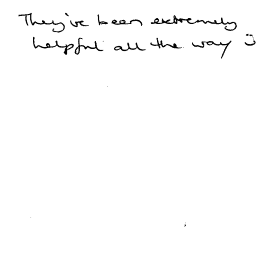 They've been extremely
helpful all the way :)